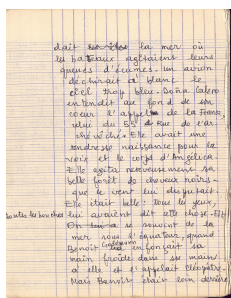 dait la mer où
les bateaux agitaient leurs
queues d'écumes. un avion
déchirait à blanc le
ciel trop bleu. Doña Calero
entendit au fond de son
coeur l'appel de la France,
celui du 55 rue de l'ar
chevêché. Elle avait une
tendresse naissance pour la
voix et le corps d'Angélica
Elle agita nerveusement sa
belle forêt de cheveux noirs.
que le vent lui disputait.
Elle était belle: tous les yeux,
toutes les bouches lui avaient dit cette chose.
se souvint de la
mer sous l'équateur quand
Benoît enfonçait sa
main froide dans sa main
à elle et l'appelait Cléopâtre.
Mais Benoît était loin derrière